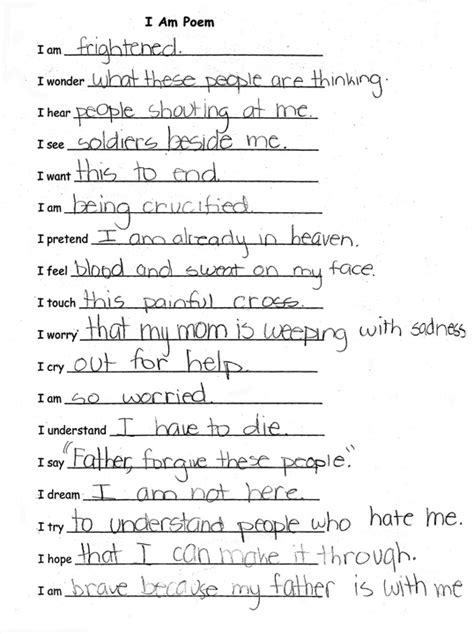 I Am Poem
I am frightened.
I wonder what these people are thinking.
I hear people shouting at me.
I see soldiers beside me.
I want this to end.
I am being crucified.
I pretend I am already in heaven.
I feel blood and sweat on my face.
I touch this painful cross.
I worry that my mom is weeping with sadness
I cry out for help.
I am so worried.
I understand I have to die.
I say "Father, forgive these people."
I dream I am not here.
I try to understand people who hate me.
I hope that I can make it through.
I am brave because my father is with me